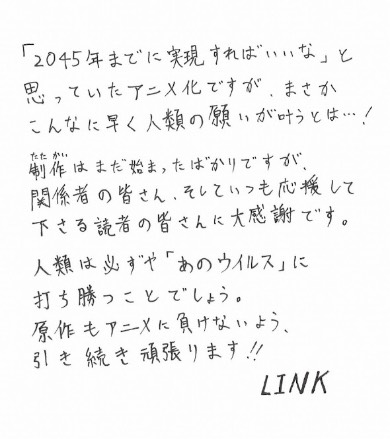 「2045年までに実現すればいいな」と
思っていたアニメ化ですが、まさか
こんなに早く人類の願いが叶うとは…!
たたかい
制作はまだ始まったばかりですが、
関係者の皆さん、そしていつも応援して
下さる読者の皆さんに大感謝です。
人類は必ずや「あのウイルス」に
打ち勝つことでしょう。
原作もアニメに負けないよう、
引き続き頑張ります!!
LINK